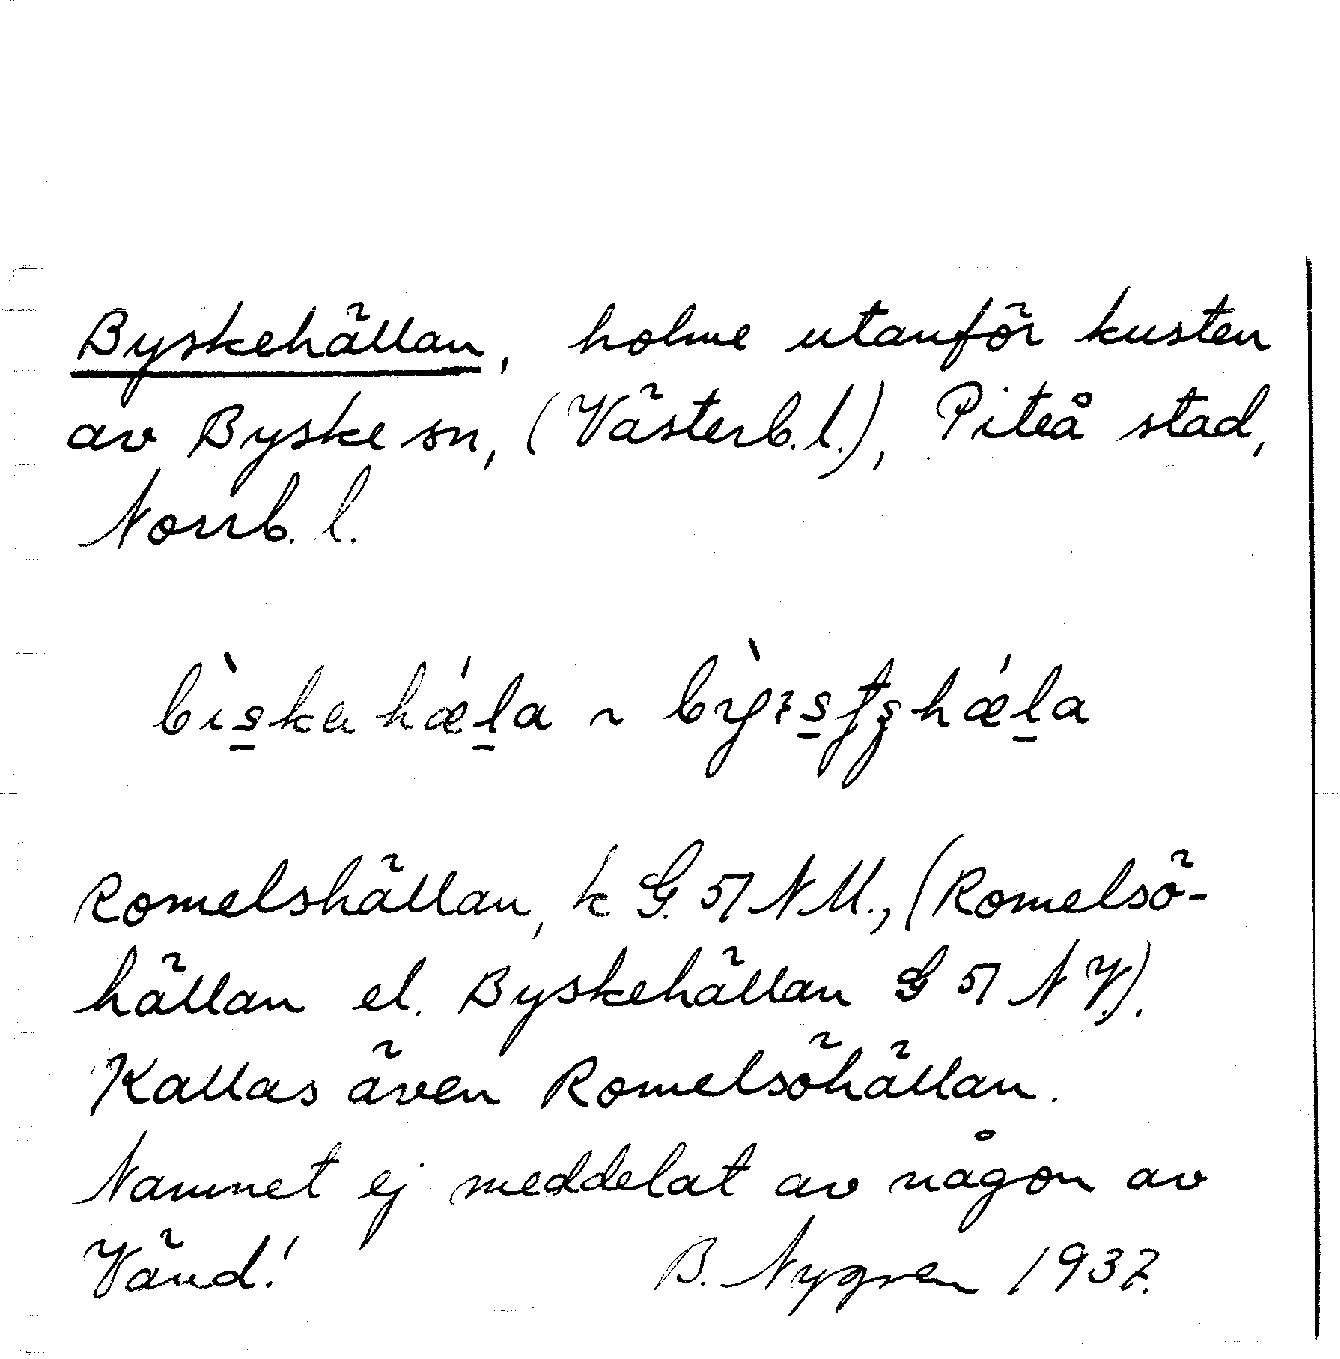 Byskehällan, holme utanför kusten
av Byske sn, (Västerb.l.), Piteå stad,
Norrb. l.
Romelshällan, k G. 51 N M., (Romelsö-
hällan el. Byskehällan G 51 N V).
Kallas även Romelsöhällan.
Namnet ej meddelat av någon av
Vänd! B. Nygren 1937.